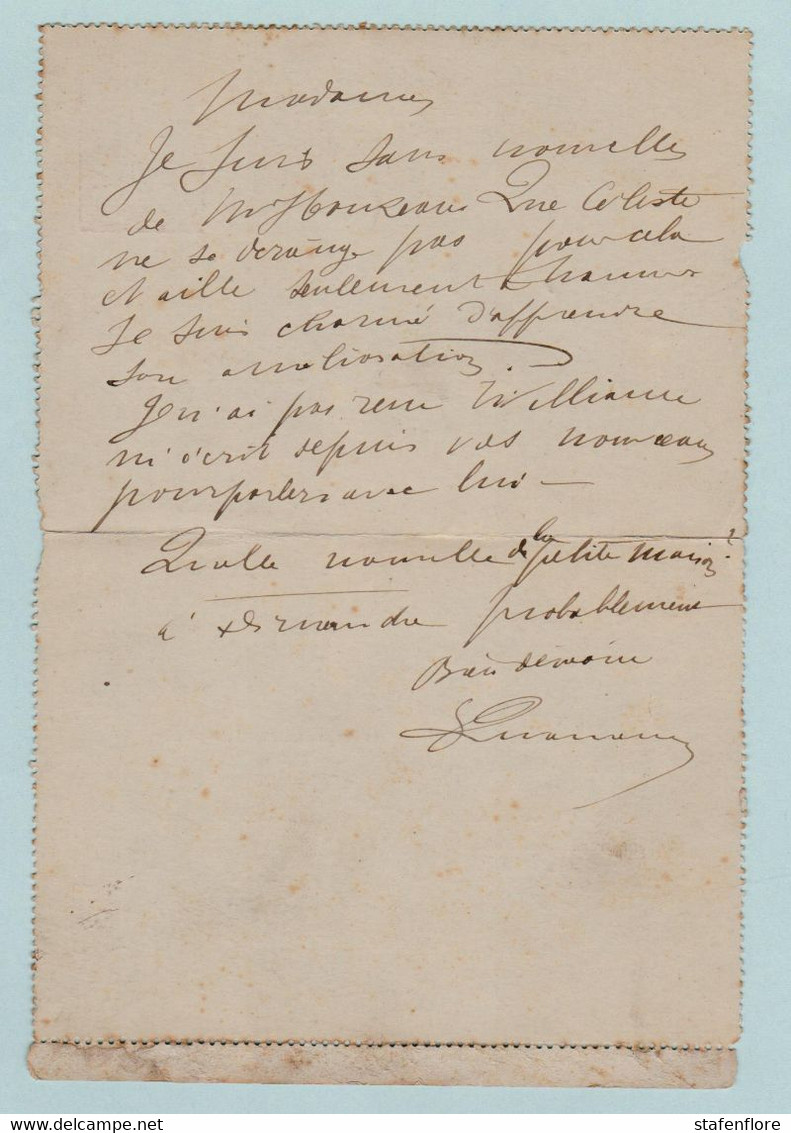 Madame
Je suis sans nouvelles
de Mr Houzeau Que Céleste
ne se dérange pas pour cela
et aille seulement à
Je suis charmé d'apprendre
son amélioration.
Je n'ai pas revu William
ni écrit depuis vos nouveaux
pourparlers avec lui —
Quelle nouvelle de la petite maison?
à probablement
Bien dévoué
stafenflore